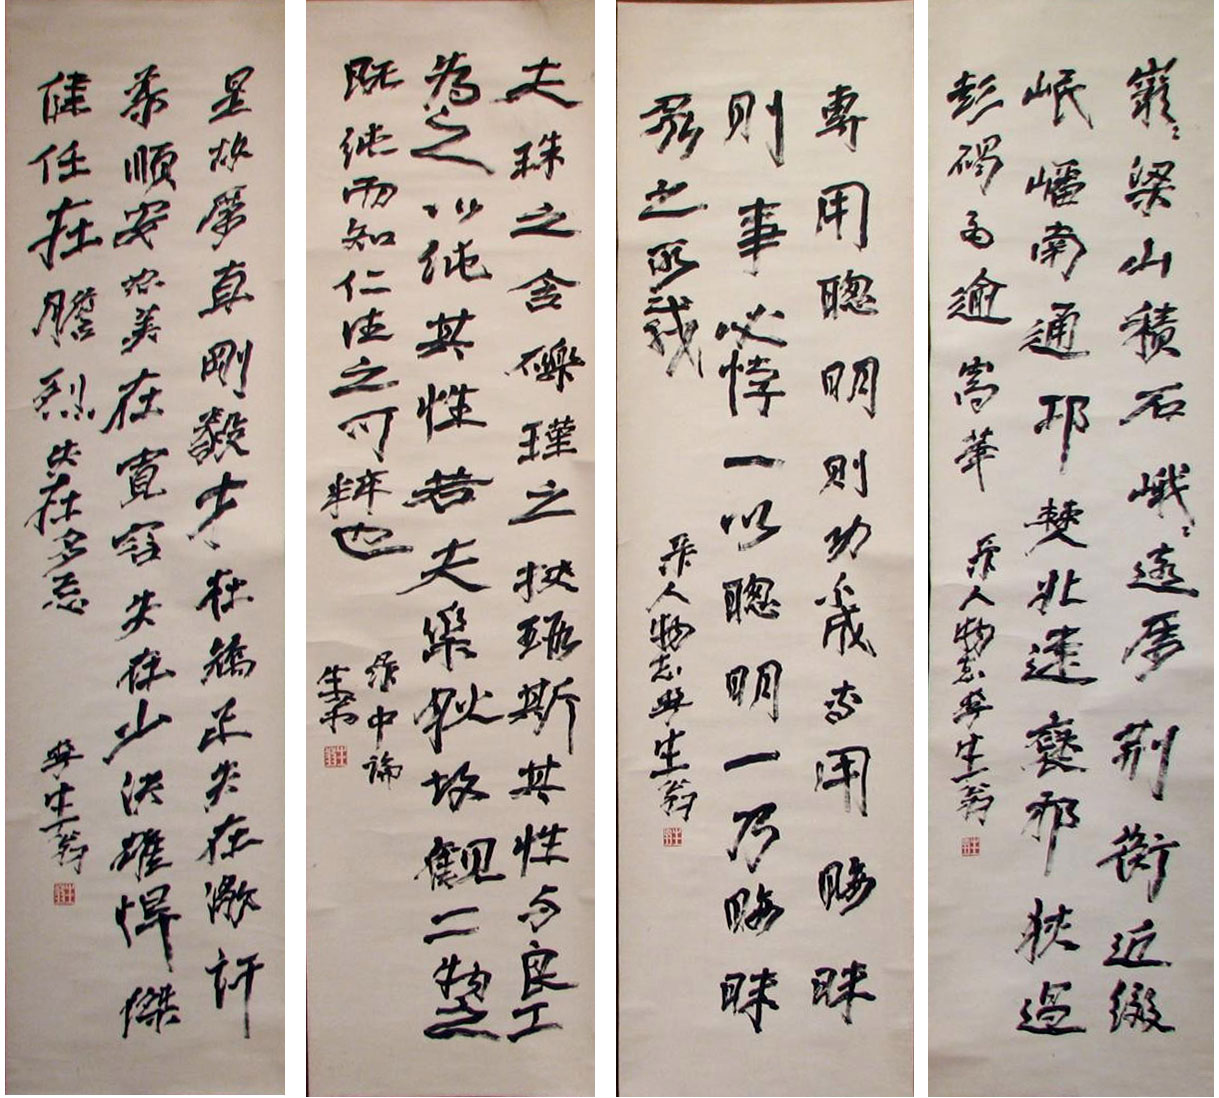 巖巖梁山積石峨峨遠屬荊衡近綴
岷嶓南通邛僰北達褒邪狹過
彭碣高逾嵩華
录人物志李生翁
專用聰明則功不成專用晦昧
則事必悖一以聰明一乃晦昧
眾之所載
录人物志李生翁
夫珠之含礫瑾之挾瑕斯其性与良工
為之以純其性若夫故觀二物之
既純而知仁德之可粹也
录中論
生翁
是故厲直剛毅才在矯正失在激訐
柔順安恕美在寬容失在少決雄悍傑
健任在膽烈失在多忌
李生翁